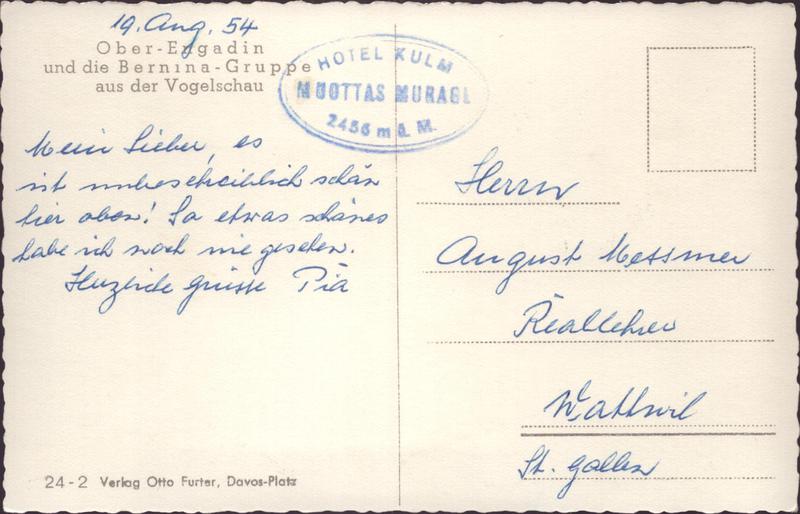 19. Aug. 54
Ober-Engadin
und die Bernina-Gruppe
aus der Vogelschau
HOTEL KULM
MUOTTAS MURAGL
2456 m ü. M.
Mein Lieber, es
ist unbeschreiblich schön
hier oben! So etwas schönes
habe ich noch nie gesehen.
Herzliche Grüsse Pia
Herrn
August Messmer
Reallehrer
Wattwil
St. Gallen
24-2 Verlag Otto Furter, Davos-Platz